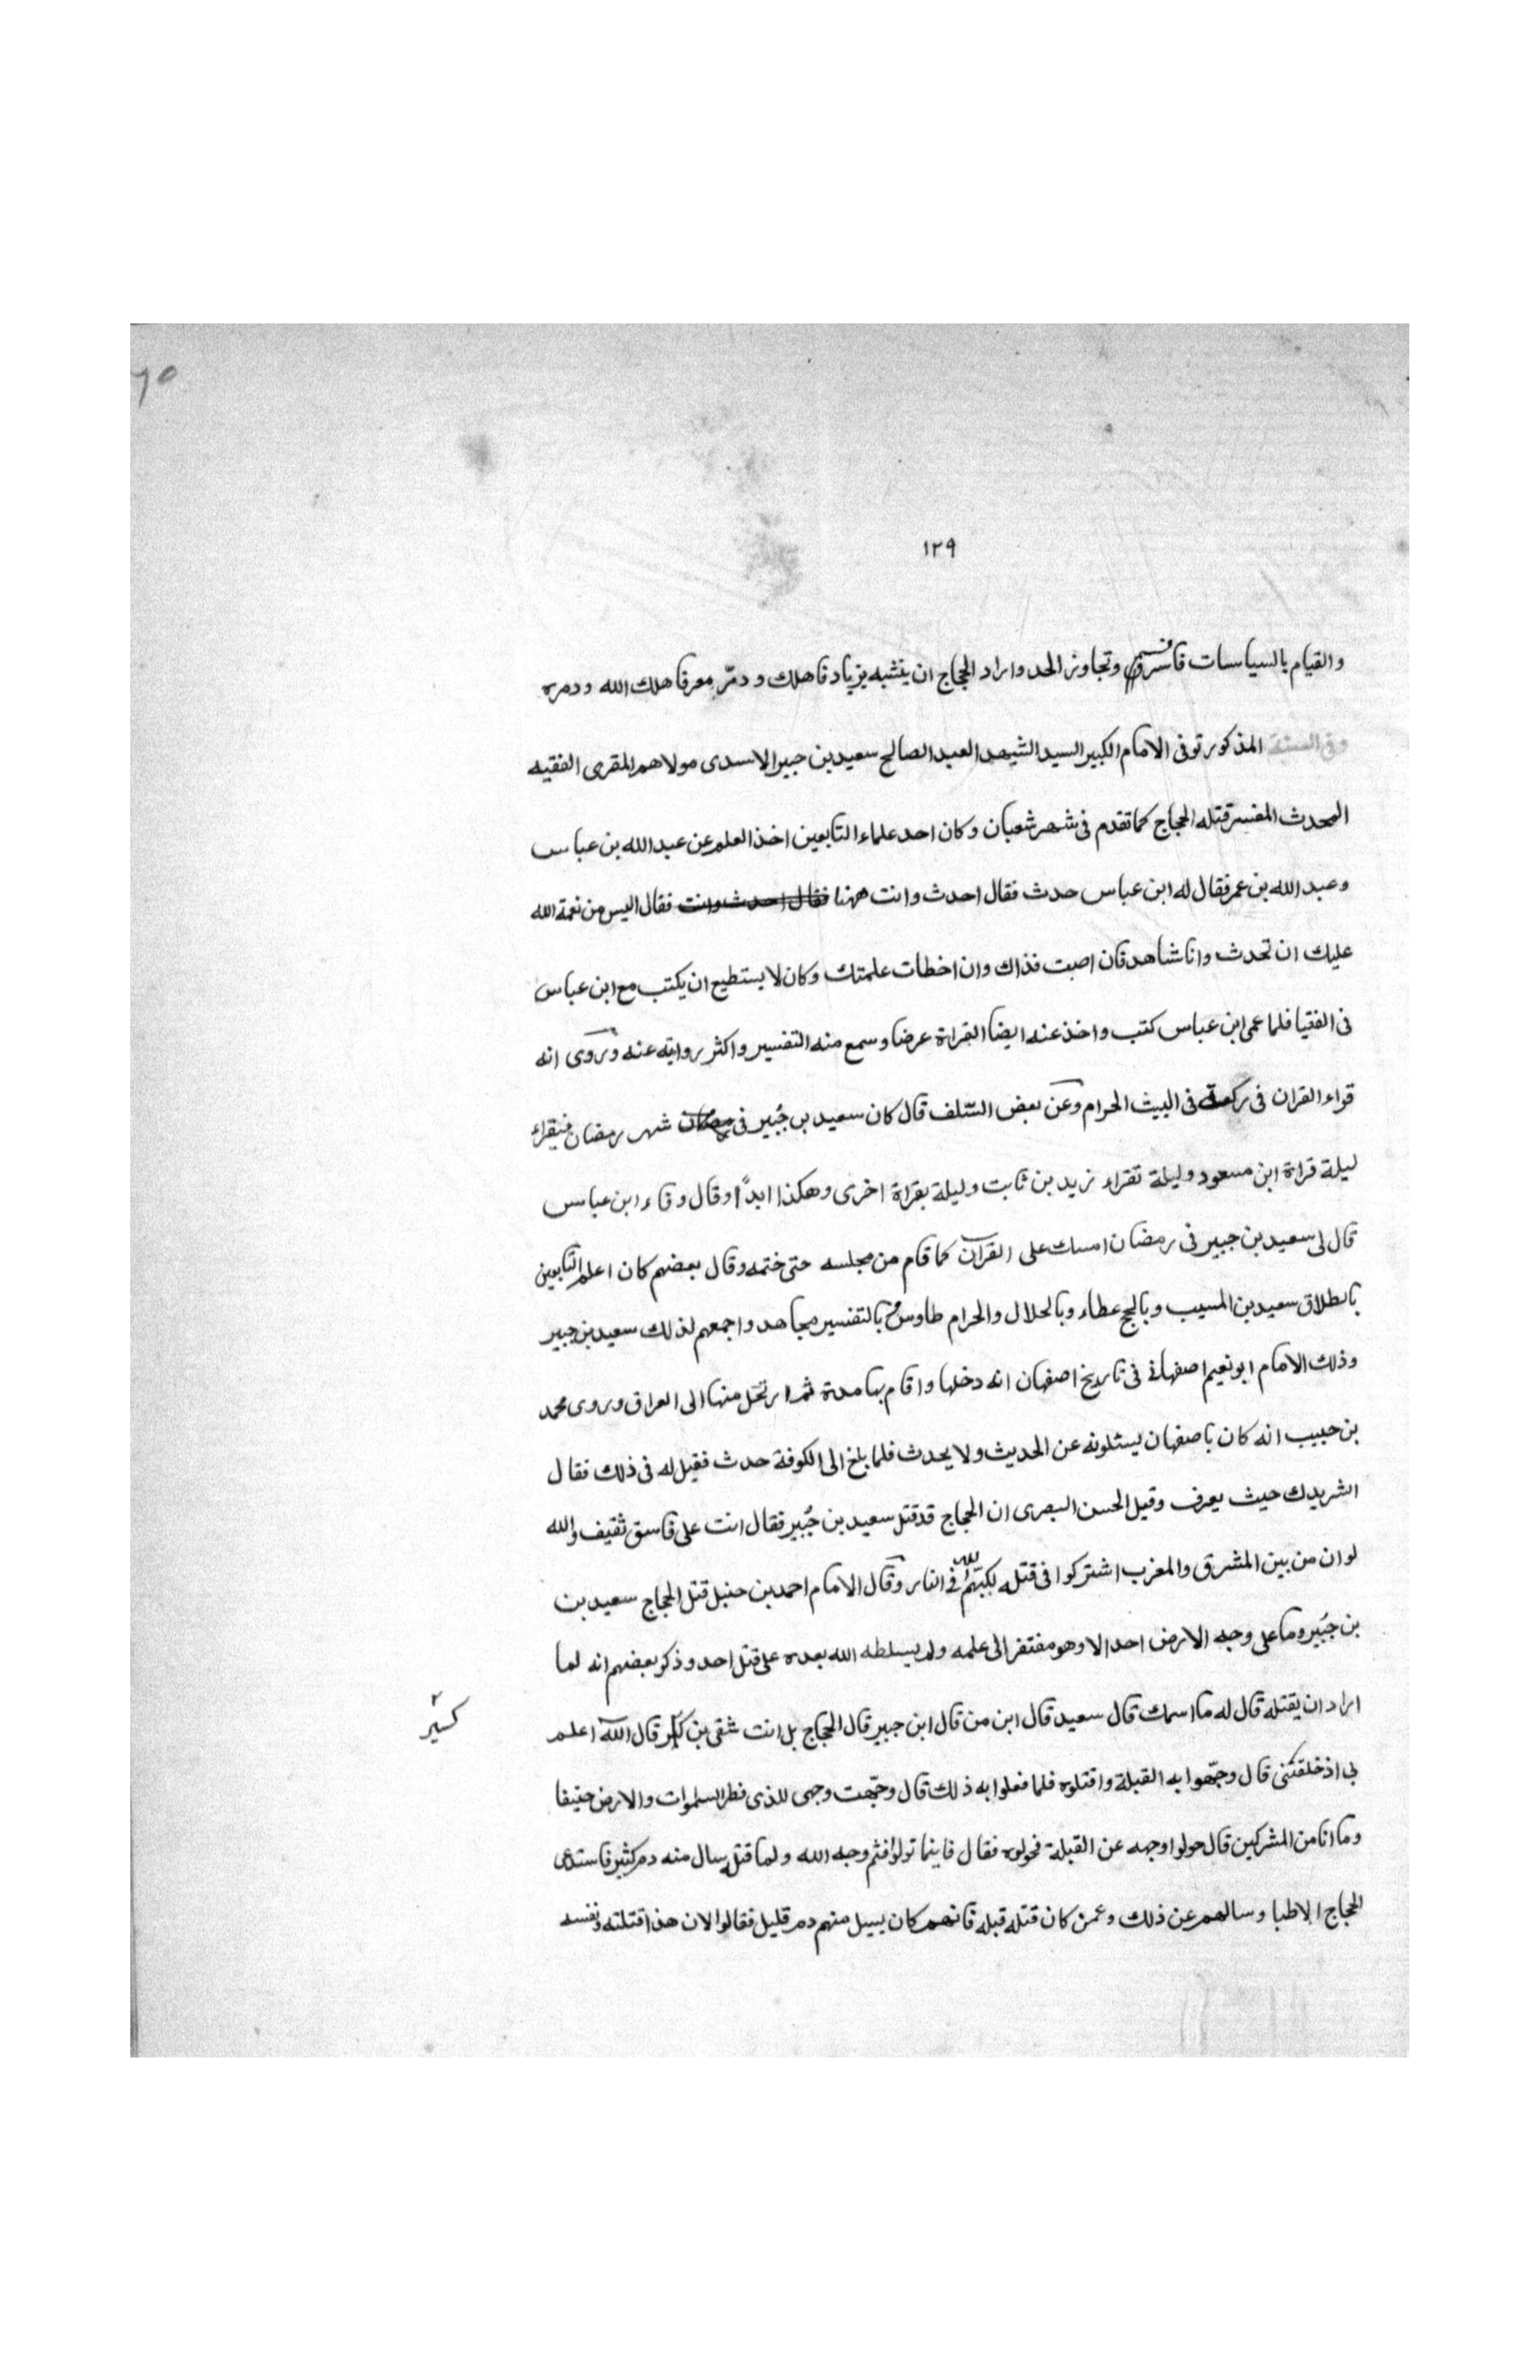 ٦٥
١٢٩
والقيام بالسياسات فاسرف وتجاوز الحد واراد الحجاج ان يتشبه بزياد فاهلك ودمّر معرفا هلك الله ودمره
وفى السنة المذكور توفى الامام الكبير السيد الشيهد العبد الصالح سعيد بن جبير الاسدى مولاهم المقرى الفقيه
المحدث المفسر قتله الحجاج كما تقدم فى شهر شعبان وكان احد علماء التابعين اخذ العلم عن عبد الله بن عباس
وعبد الله بن عمر فقال له ابن عباس حدث فقال احدث وانت ههنا فقال احدث وانت فقال اليس من نعمة الله
عليك ان تحدث وانا شاهد فان اصبت فذاك وان اخطات علمتك وكان لا يستطيع ان يكتب مع ابن عباس
فى الفتيا فلما عمى ابن عباس كتب واخذ عنه ايضا القراة عرضا وسمع منه التفسير واكثر روايته عنه وروى انه
قراء القران فى ركعة فى البيت الحرام وعن بعض السّلف قال كان سعيد بن جُبير فى شهر رمضان فيقراء
ليلة قراة ابن مسعود وليلة تقراء زيد بن ثابت وليلة بقراة اخرى وهكذا ابداً وقال وقاء ابن عباس
قال لى سعيد بن جبير فى رمضان امسك على القرآن كما قام من مجلسه حتى ختمه وقال بعضهم كان اعلم التابعين
بالطلاق سعيد بن المسيب وبالحج عطاء وبالحلال والحرام طاوس وبالتفسير مجاهد واجمعهم لذلك سعيد بن جبير
وذلك الامام ابو نعيم اصفهانى فى تاريخ اصفهان انه دخلها واقام بها مدة ثم ارتحل منها الى العراق وروى محمد
بن حبيب انه كان باصفهان يسئلونه عن الحديث ولا يحدث فلما بلغ الى الكوفة حدث فقيل له فى ذلك فقال
انشر يدك حيث يعرف وقيل الحسن البصرى ان الحجاج قد قتل سعيد بن جُبير فقال انت على فاسق ثقيف والله
لو ان من بين المشرق والمغرب اشتركوا فى قتله لكبّهم الله فى النار وقال الامام احمد بن حنبل قتل الحجاج سعيد بن
بن جُبير وما على وجه الارض احد الا وهو مفتقر الى علمه ولم يسلطه الله بعده على قتل احد وذكر بعضهم انه لما
اراد ان يقتله قال له ما اسمك قال سعيد قال ابن من قال ابن جبير قال الحجاج بل انت شقى بن قال الله اعلم
كسير
بى اذ خلقتنى قال وجّهوا به القبلة واقتلوه فلما فعلوا به ذلك قال وجّهت وجهى للذى فطر السموات والارض حنيفا
وما انا من المشركين قال حولوا وجهه عن القبلة فحولوه فقال فاينما تولوا فثم وجه الله ولما قتل سال منه دم كثير فاستدعى
الحجاج الاطبا وسالهم عن ذلك وعمن كان قتله قبله فانهم كان يسيل منهم دم قليل فقالوا الان هذا قتلته ونفسه